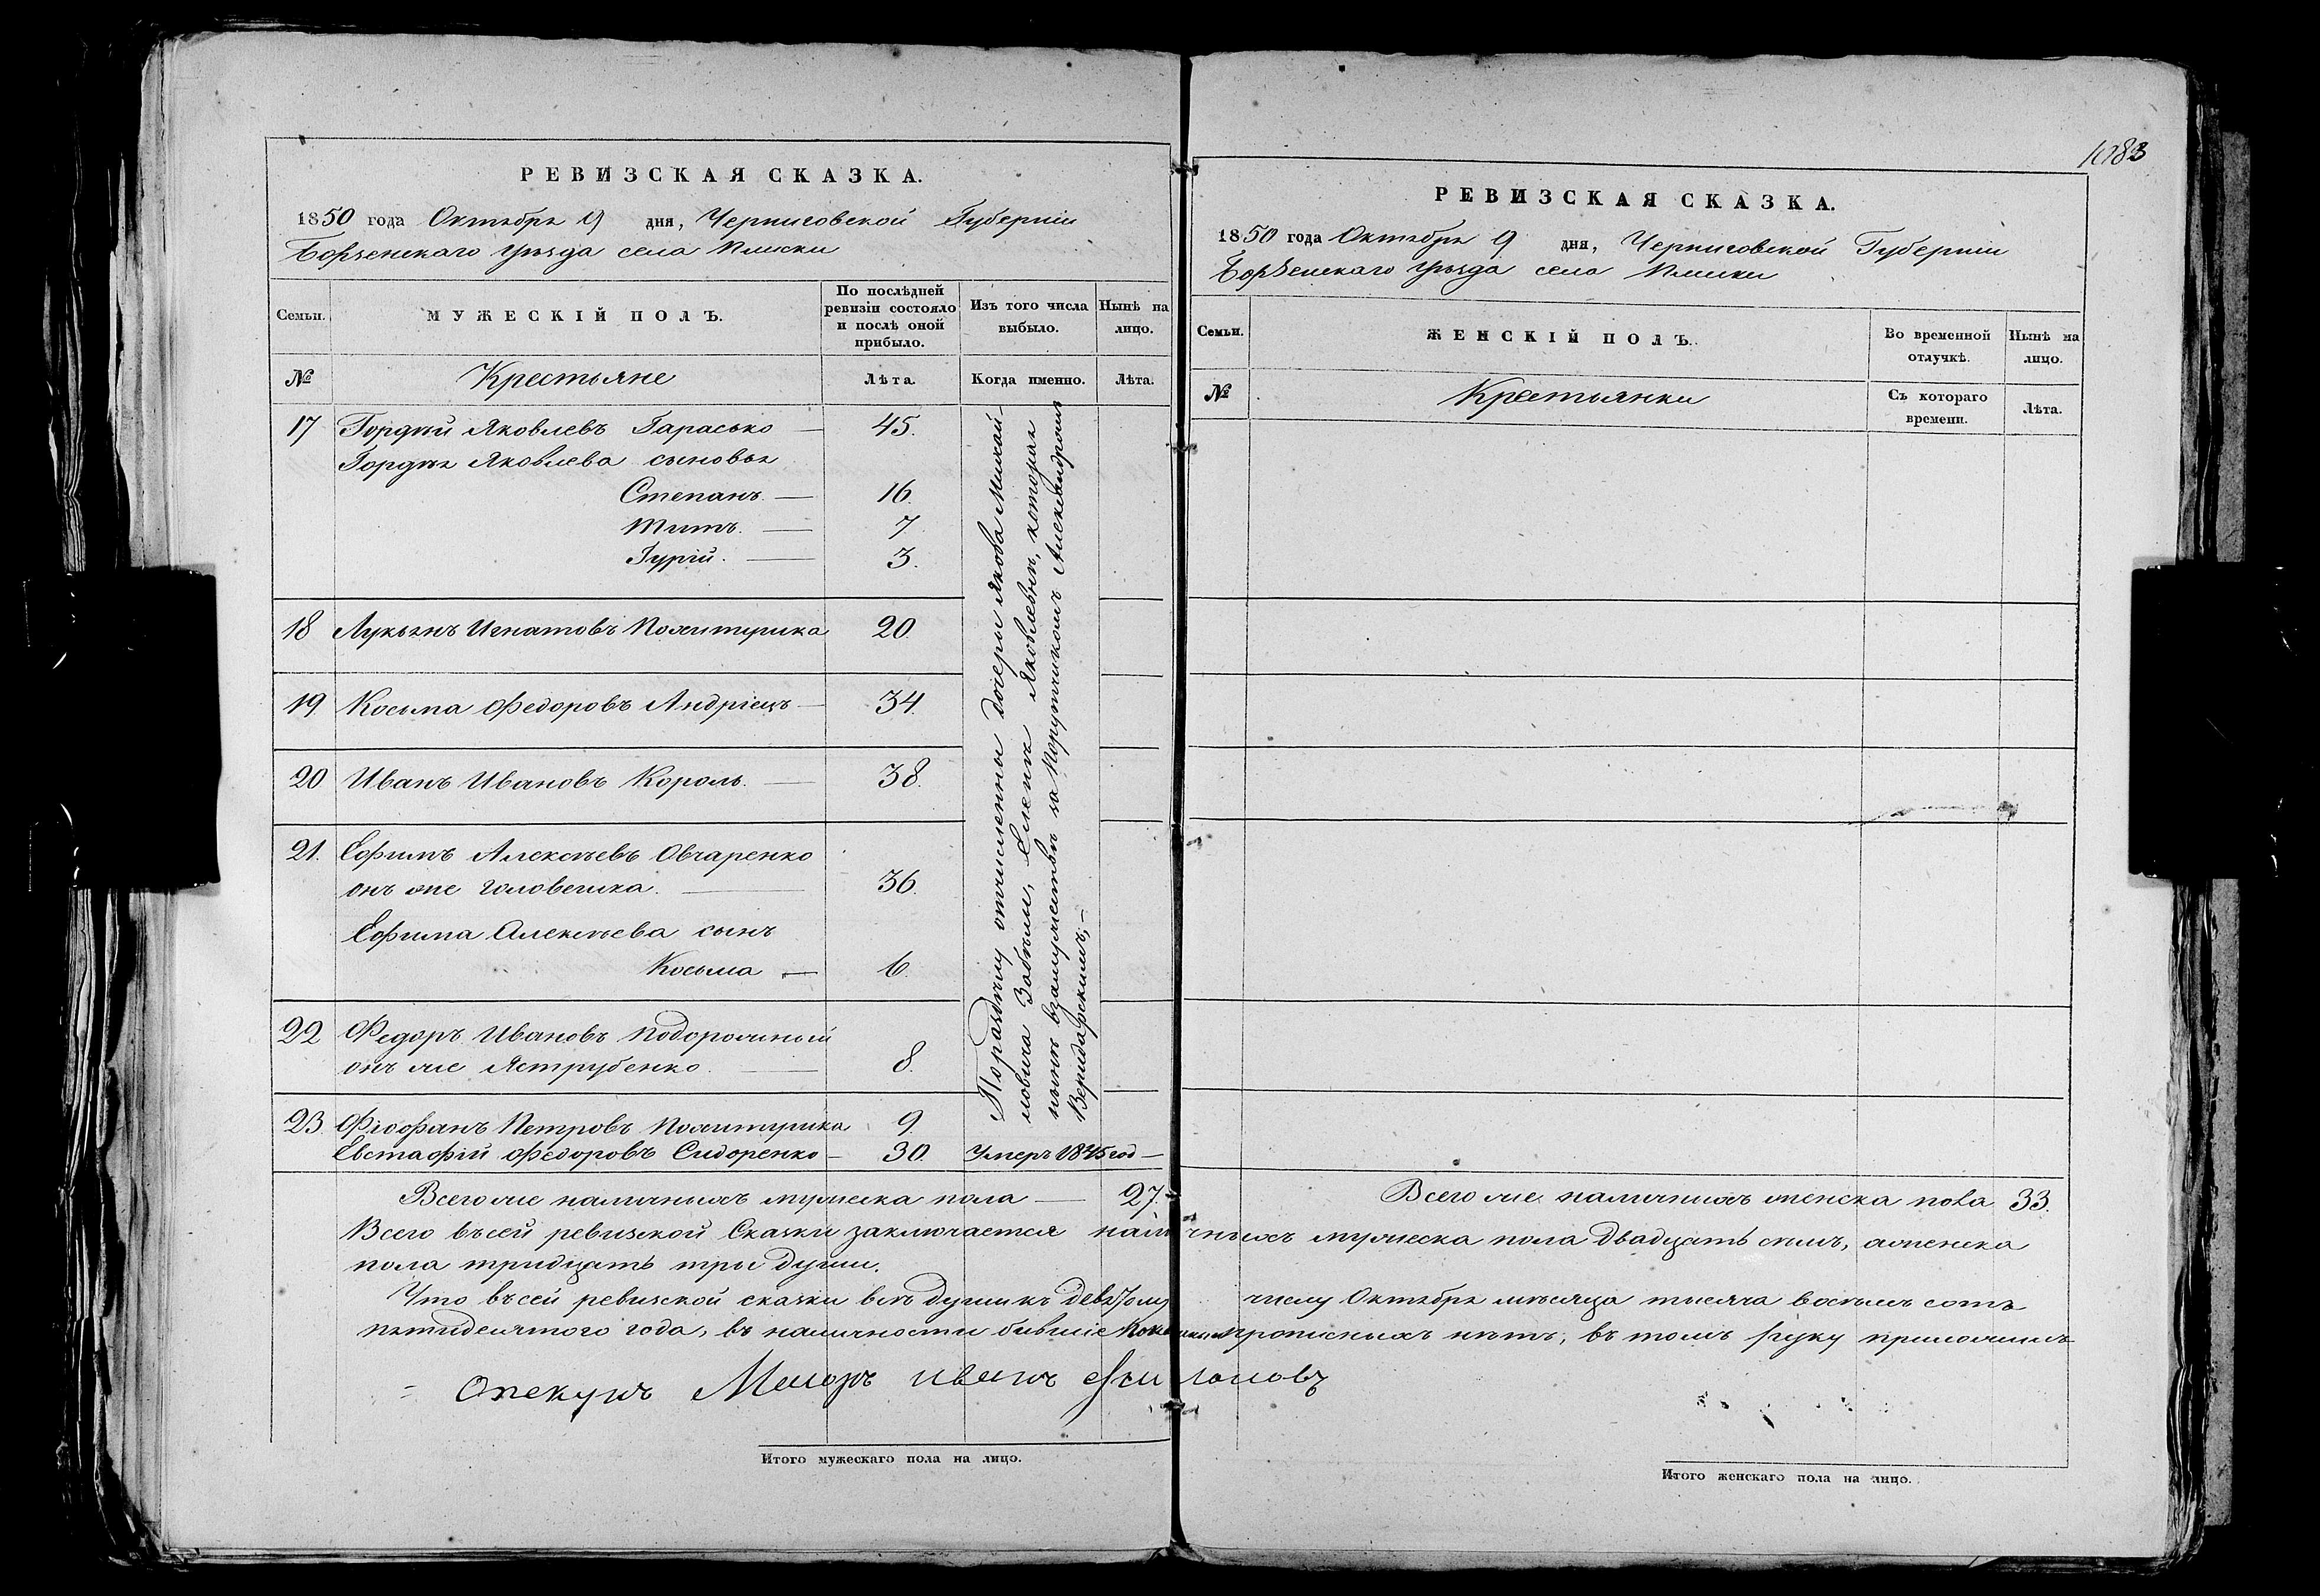 РЕВИЗСКАЯ СКАЗКА.
1850 года Октября 9 дня, Черниговской Губерніи
Борзенскаго уѣзда села Плиски
Семьи.
МУЖЕСКІЙ ПОЛЪ.
По послѣдней ревизіи состояло и послѣ оной прибыло.
Изъ того числа выбыло.
Нынѣ на лицо.
№
Крестьяне
Лѣта.
Когда именно.
Лѣта.
17 Гордѣй Яковлевъ Гарасько — 45.
Гордѣя Яковлева сыновья
Степанъ — 16.
Титъ. — 7.
Гурій. — 3.
18 Лукьянъ Игнатовъ Пожитурика 20.
19 Косьма Федоровъ Андріецъ — 34.
20 Иванъ Ивановъ Король. — 38.
21. Ефимъ Алексѣевъ Овчаренко
онъ же Головешка. — 36.
Ефима Алексѣева сынъ
Косьма — 6.
22 Федоръ Ивановъ Подорожный
онъ же Яструбенко. — 8.
23 Фіофанъ Петровъ Пожитурика 9.
Евстафій Федоровъ Сидоренко — 30. Умеръ 1845 год —
По раздѣлу отчисленны дочери Якова Михай-
ловича Забѣлы, Еленѣ Яковлевнѣ, которая
нынѣ взамужествѣ за Порутчикомъ Александромъ
Веридарскимъ, —
Всего же наличныхъ мужеска пола — 27.
Всего въ сей ревизской Сказки заключается наличныхъ мужеска пола двадцать семь, а женска
пола тридцать три души.
Что въ сей ревизской сказки всѣ души къ девятому числу Октября мѣсяца тысяча восемь сотъ
пятидесятого года, въ наличности бывшіе показаны и прописныхъ нѣтъ, въ томъ руку приложилъ
Опекунъ Маіоръ Иванъ
Итого мужескаго пола на лицо.
1083
РЕВИЗСКАЯ СКАЗКА.
1850 года Октября 9 дня, Черниговской Губерніи
Борзенскаго уѣзда села Плиски
Семьи.
ЖЕНСКІЙ ПОЛЪ.
Во временной отлучкѣ.
Нынѣ на лицо.
№
Крестьянки
Съ котораго времени.
Лѣта.
Всего же наличныхъ женска пола 33.
Итого женскаго пола на лицо.